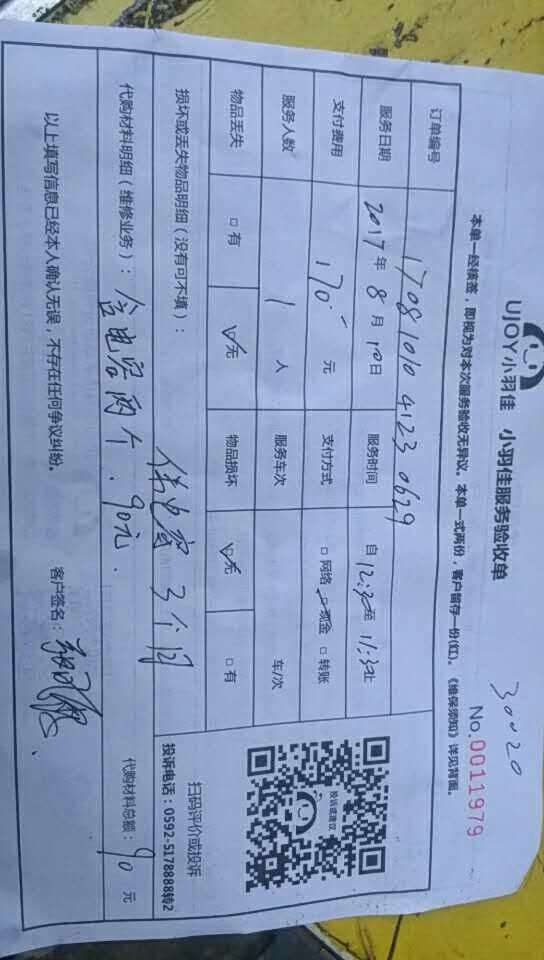 30020
UJOY小羽佳 小羽佳服务验收单
No.0011979
本单一经核签，即视为对本次服务验收无异议。本单一式两份，客户留存一份(红)。《维保须知》详见背面。
订单编号 1708101041230629
服务日期 2017年8月10日 服务时间 自12:30至11:30止
支付费用 170元 支付方式 □网络 ☑现金 □转账
服务人数 1人 服务车次 车/次
物品丢失 □有 ☑无 物品损坏 ☑无 □有
投诉或建议
扫码评价或投诉
投诉电话：0592-5178888转2
损坏或丢失物品明细（没有可不填）：
保电容3个月
代购材料明细（维修业务）：含电容两个.90元. 代购材料总额：90元
以上填写信息已经本人确认无误，不存在任何争议纠纷。 客户签名：